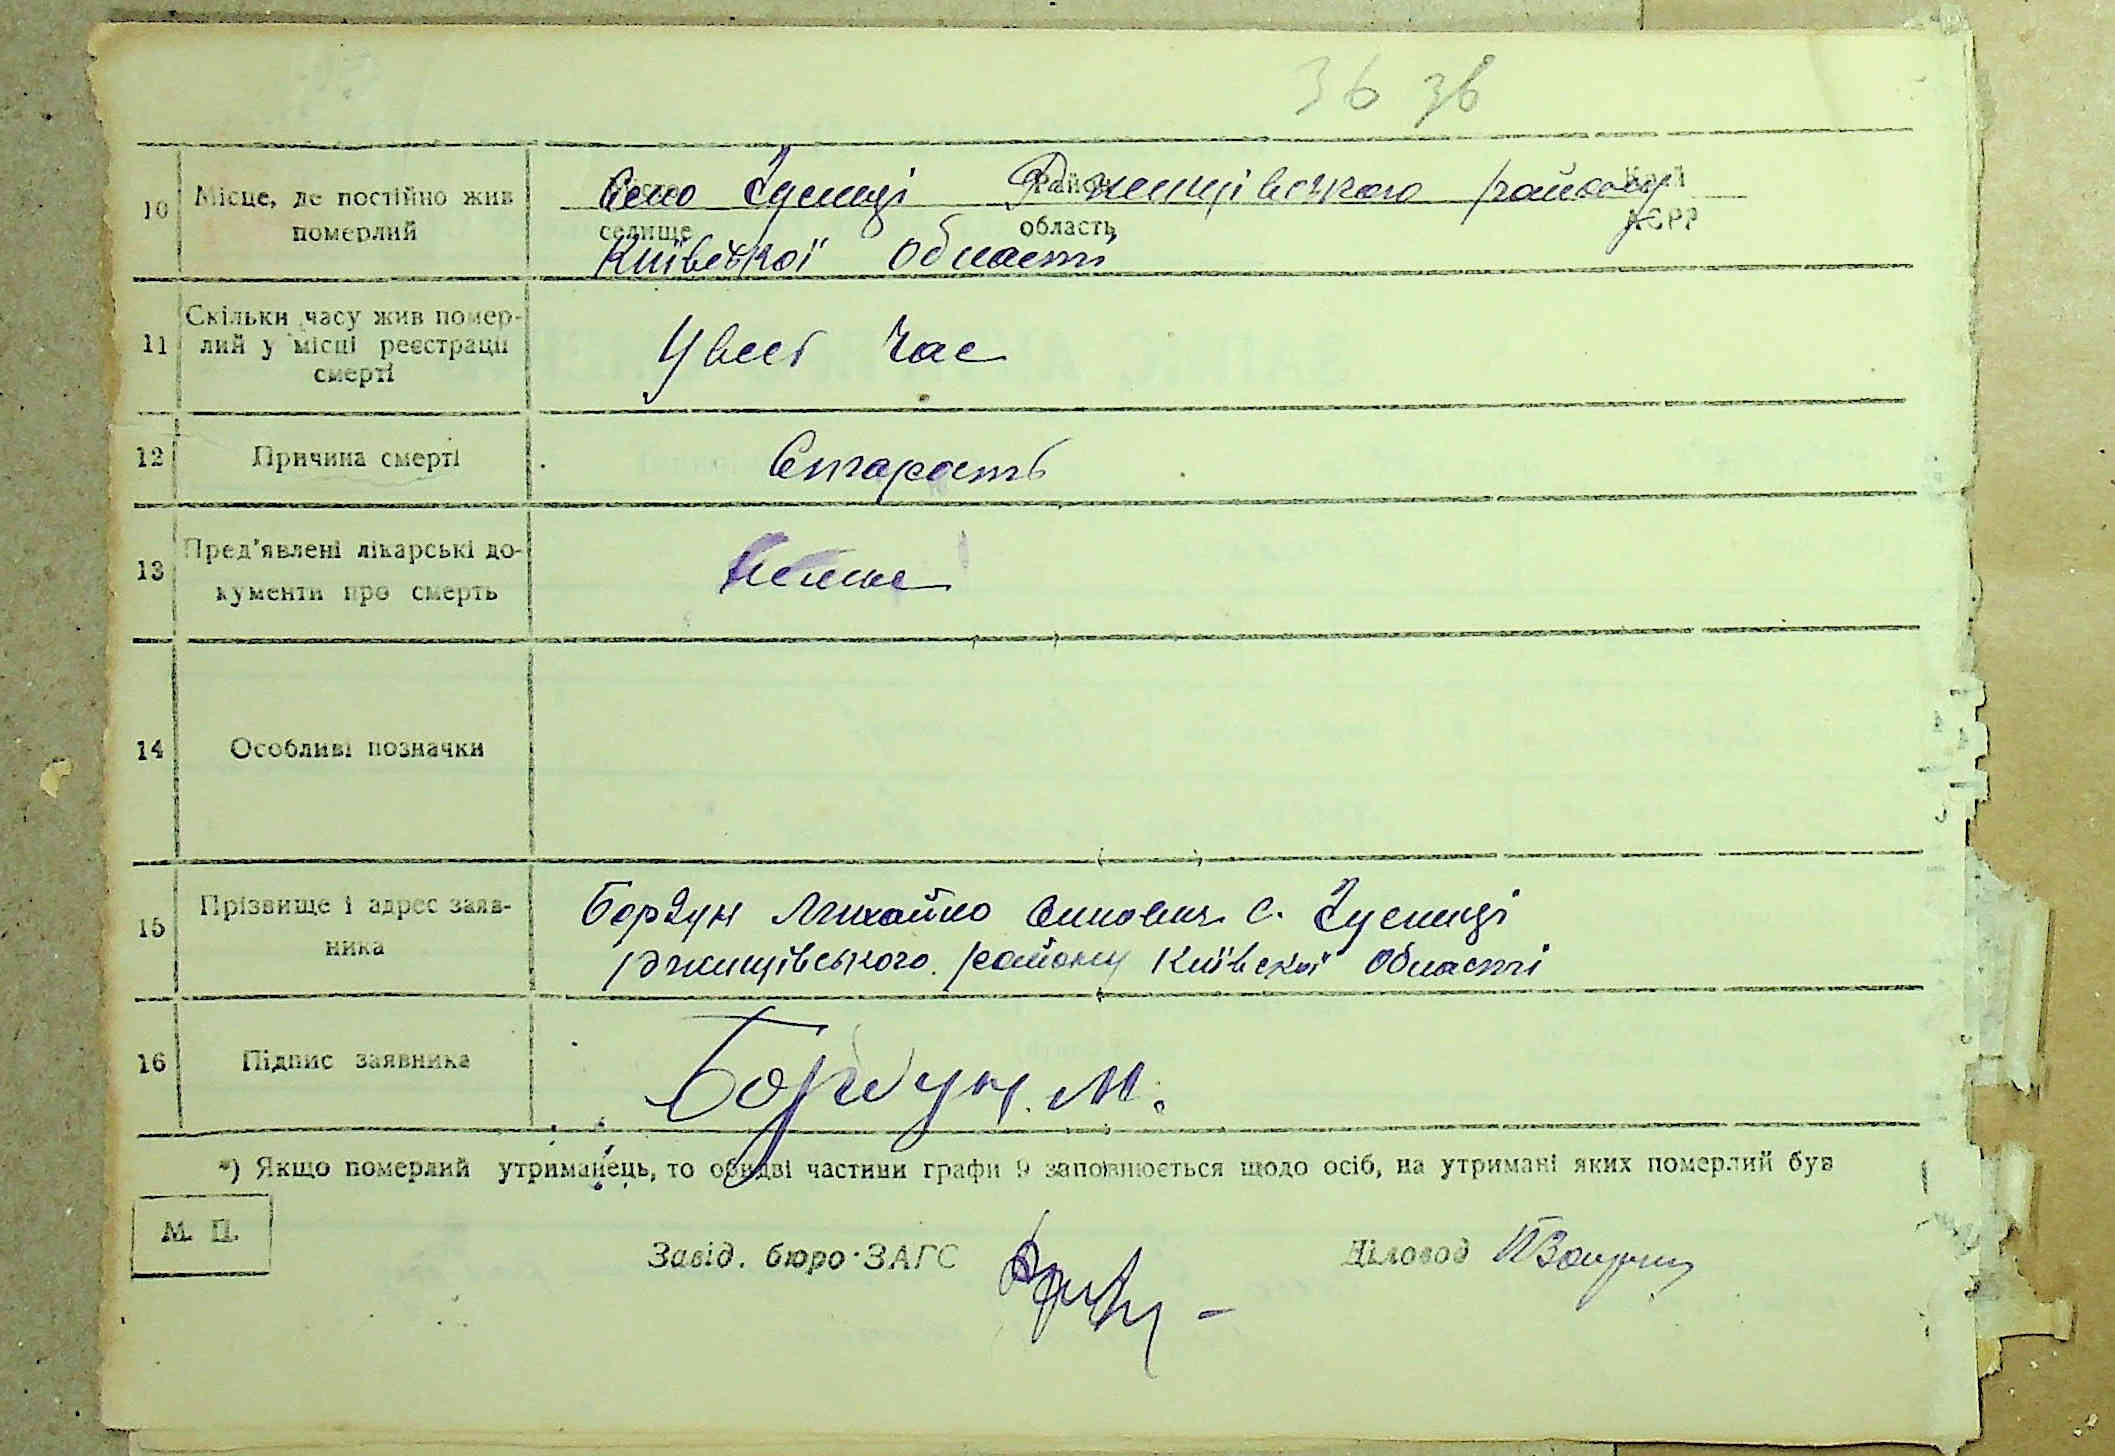 36 зв
10 Місце, де постійно жив померлий
місто район Край
Село Гусинці Ржищівського району
селище область АСРР
Київської області
11 Скільки часу жив помер-
лий у місці реєстрації
смерті
Увесь час
12 Причина смерті
Старость
13 Пред'явлені лікарські до-
кументи про смерть
14 Особливі позначки
15 Прізвище і адрес заяв-
ника
Бордун Михайло с. Гусинці
Ржищівського району Київскої області
16 Підпис заявника
Бордун. М.
*) Якщо померлий утриманець, то обидві частини графи 9 заповнюється щодо осіб, на утримані яких померлий був
М. П.
Завід. бюро ЗАГС Діловод